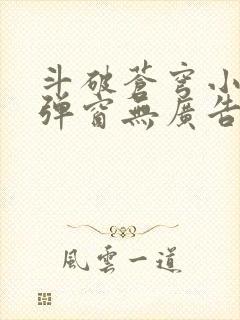 斗破蒼穹小
彈窗無廣告
風雲一道